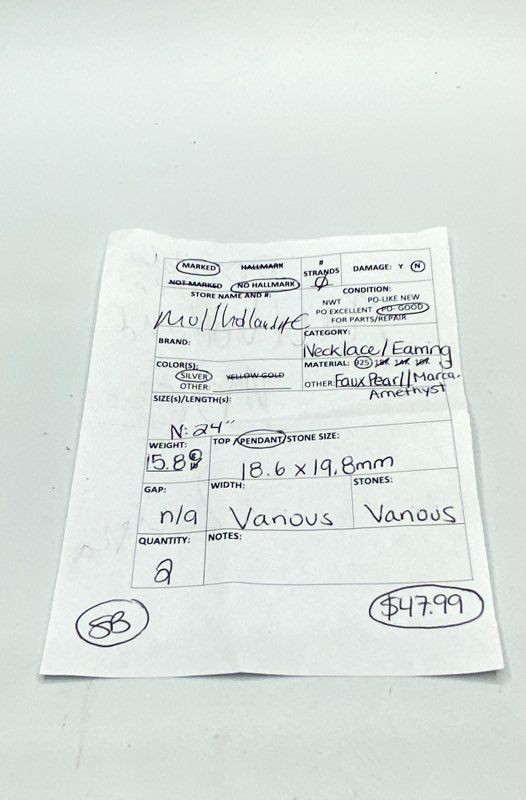 MARKED HALLMARK # STRANDS DAMAGE: Y N
NOT MARKED NO HALLMARK Ø
STORE NAME AND #: CONDITION:
NWT PO-LIKE NEW
PO EXCELLENT PO-GOOD
FOR PARTS/REPAIR
BRAND: CATEGORY:
Necklace/Earring
COLOR(S): MATERIAL: 925 18K 14K 10K
SILVER YELLOW GOLD
OTHER: OTHER: Faux Pearl/Marca.
Amethyst
SIZE(S)/LENGTH(s):
N: 24"
WEIGHT: TOP /PENDANT/STONE SIZE:
15.8
18.6 x 19.8mm
GAP: WIDTH: STONES:
n/a Various Various
QUANTITY: NOTES:
2
$47.99